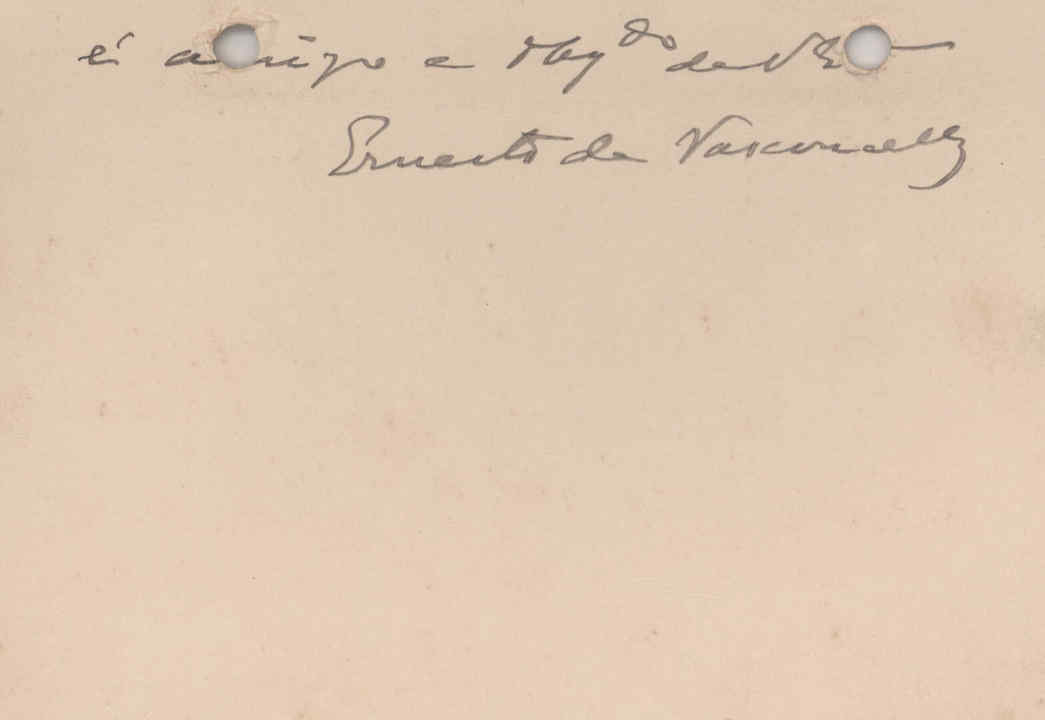 é amigo e obg.do de V E
Ernesto de Vasconcellos